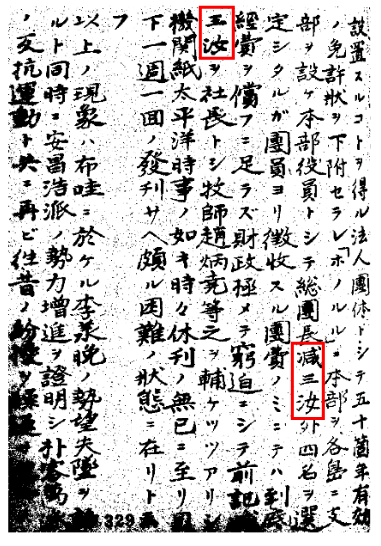 設置スルコトヲ得ル法人團体トシテ五十箇年有効
ノ免許狀ヲ下附セラレ「ホノルル」ニ本部ヲ各島ニ支
部ヲ設ケ本部役員トシテ総團長減三汝外四名ヲ選
定シタルガ團員ヨリ徴收スル團費ノミニテハ到底
經費ヲ償フニ足ラズ財政極メテ窮迫ニシテ前記
玉汝ヲ社長トシ牧師趙炳堯等之ヲ輔ケツツアリシ
機関紙太平洋時事ノ如キ時々休刊ノ無已ニ至リ
下一週一回ノ發刊サヘ頗ル困難ノ狀態ニ在リト云
フ
以上ノ現象ハ布哇ニ於ケル李承晩ノ勢望失墜ヲ
ルト同時ニ安昌浩派ノ勢力増進ヲ證明シ朴容萬
ノ反抗運動ト共ニ再ビ往昔ノ紛擾ヲ
329